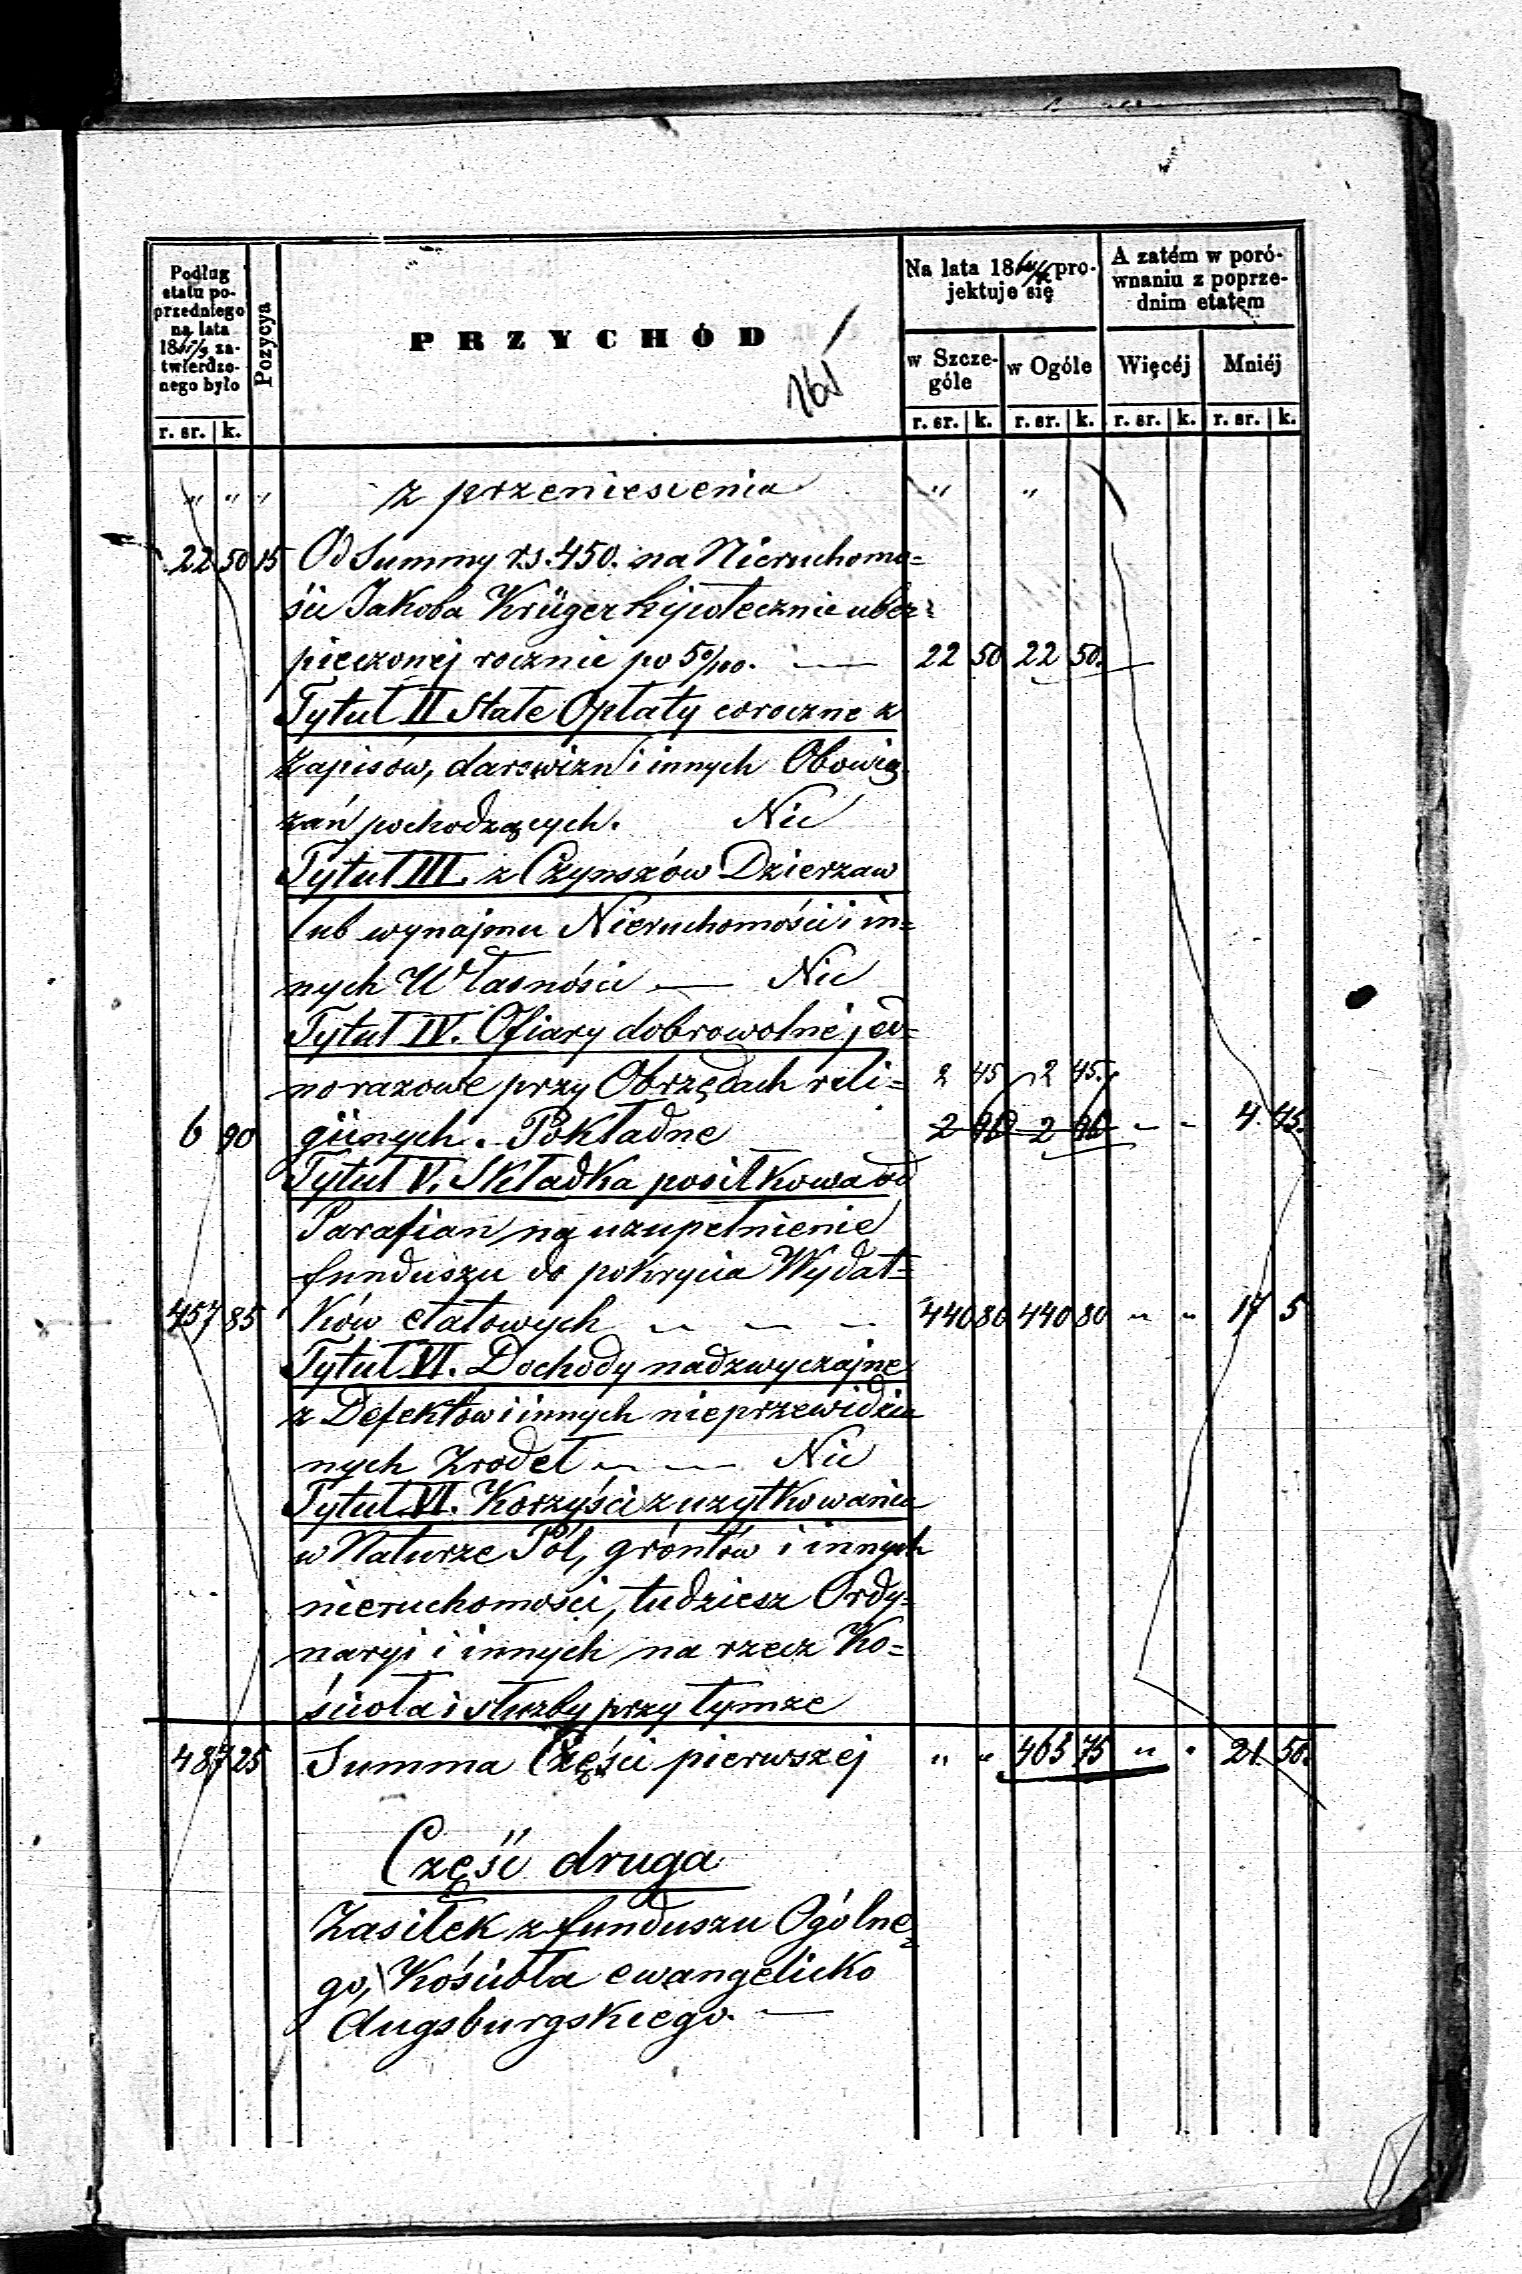 Podług
etatu po-
przedniego
na lata
18 za-
twierdzo-
nego było
r. sr. k.
Pozycya
PRZYCHÓD
Na lata 18 pro-
jektuje się
w Szcze-
góle
w Ogóle
r. sr. k. r. sr. k.
A zatém w poró-
wnaniu z poprze-
dnim etatem
Więcéj Mniéj
r. sr. k. r. sr. k.
" " " z przeniesienia " "
22 50 15 Od Summy rs. 450. na Nieruchomo=
ści Jakoba Krüger hypotecznie ubez=
pieczonej rocznie po 5%. — 22 50 22 50. —
Tytuł II Stałe Opłaty coroczne z
Zapisów, darowizn i innych Obowią
zań pochodzących. Nic
Tytuł III. z Czynszów Dzierzaw
lub wynajmu Nieruchomości i in=
nych Własności — Nic
Tytuł IV. Ofiary dobrowolne jed=
norazowe przy Obrzędach reli= 2 45 2 45.
6 90 giinych. Pokładne 2 2 - - 4 45.
Tytuł V. Składka posiłkowa od
Parafian na uzupełnienie
funduszu do pokrycia Wydat=
457 85 ków etatowych — — — 440 80 440 80 " " 17 5
Tytuł VI. Dochody nadzwyczajne
z Defektow i innych nieprzewidzia
nych Zrodeł — — Nic
Tytuł VI. Korzyści z uzytkowania
w Naturze Pól, gróntów i innych
nieruchomości, tudziesz Ordy=
naryi i innych na rzecz Ko=
ścioła i służby przy tymze
487 25 Summa Części pierwszej " " 465 75 " " 21. 50.
Część druga
Zasiłek z funduszu Ogólne=
go, Kościoła ewangelicko
Augsburgskiego. —